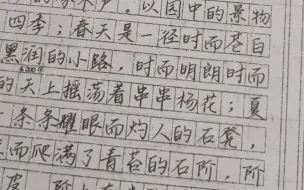 以园中的景物
四季；春天是一径时而苍白
黑润的小路，时而明朗时而
的天上摇荡着串串杨花；夏
条条耀眼而灼人的石凳，
而爬满了青苔的石阶，阶